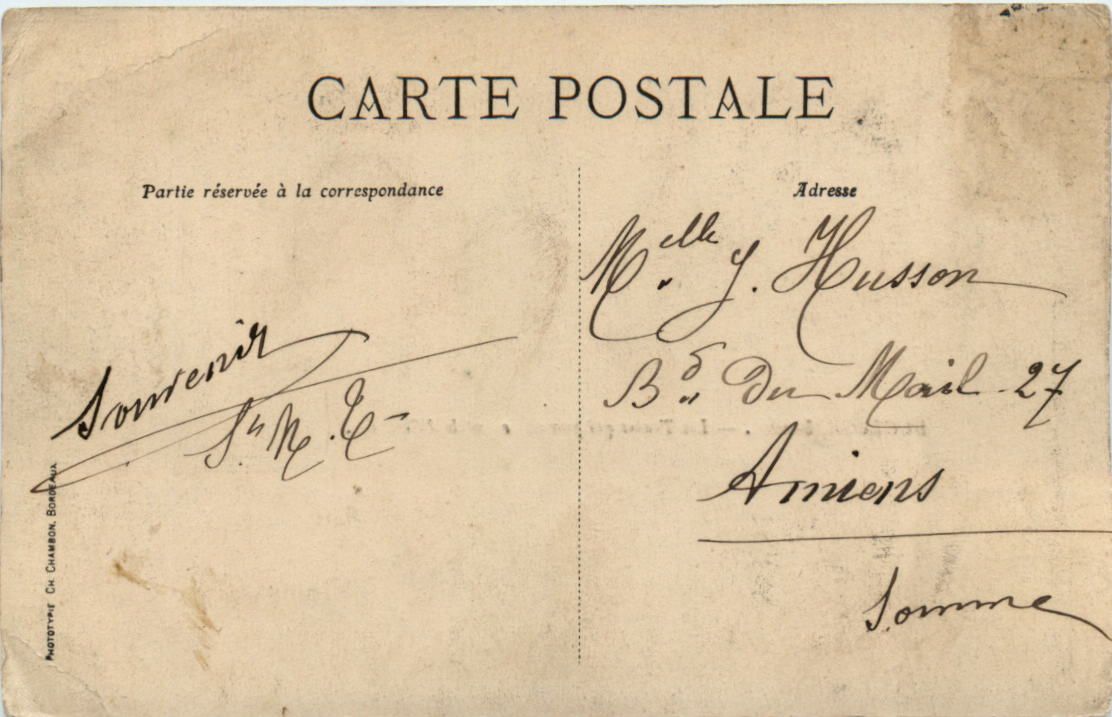 CARTE POSTALE
Partie réservée à la correspondance
Adresse
Souvenir
Melle J. Husson
Bd Du Mail 27
Amiens
Somme
PHOTOTYPIE CH. CHAMBON, BORDEAUX